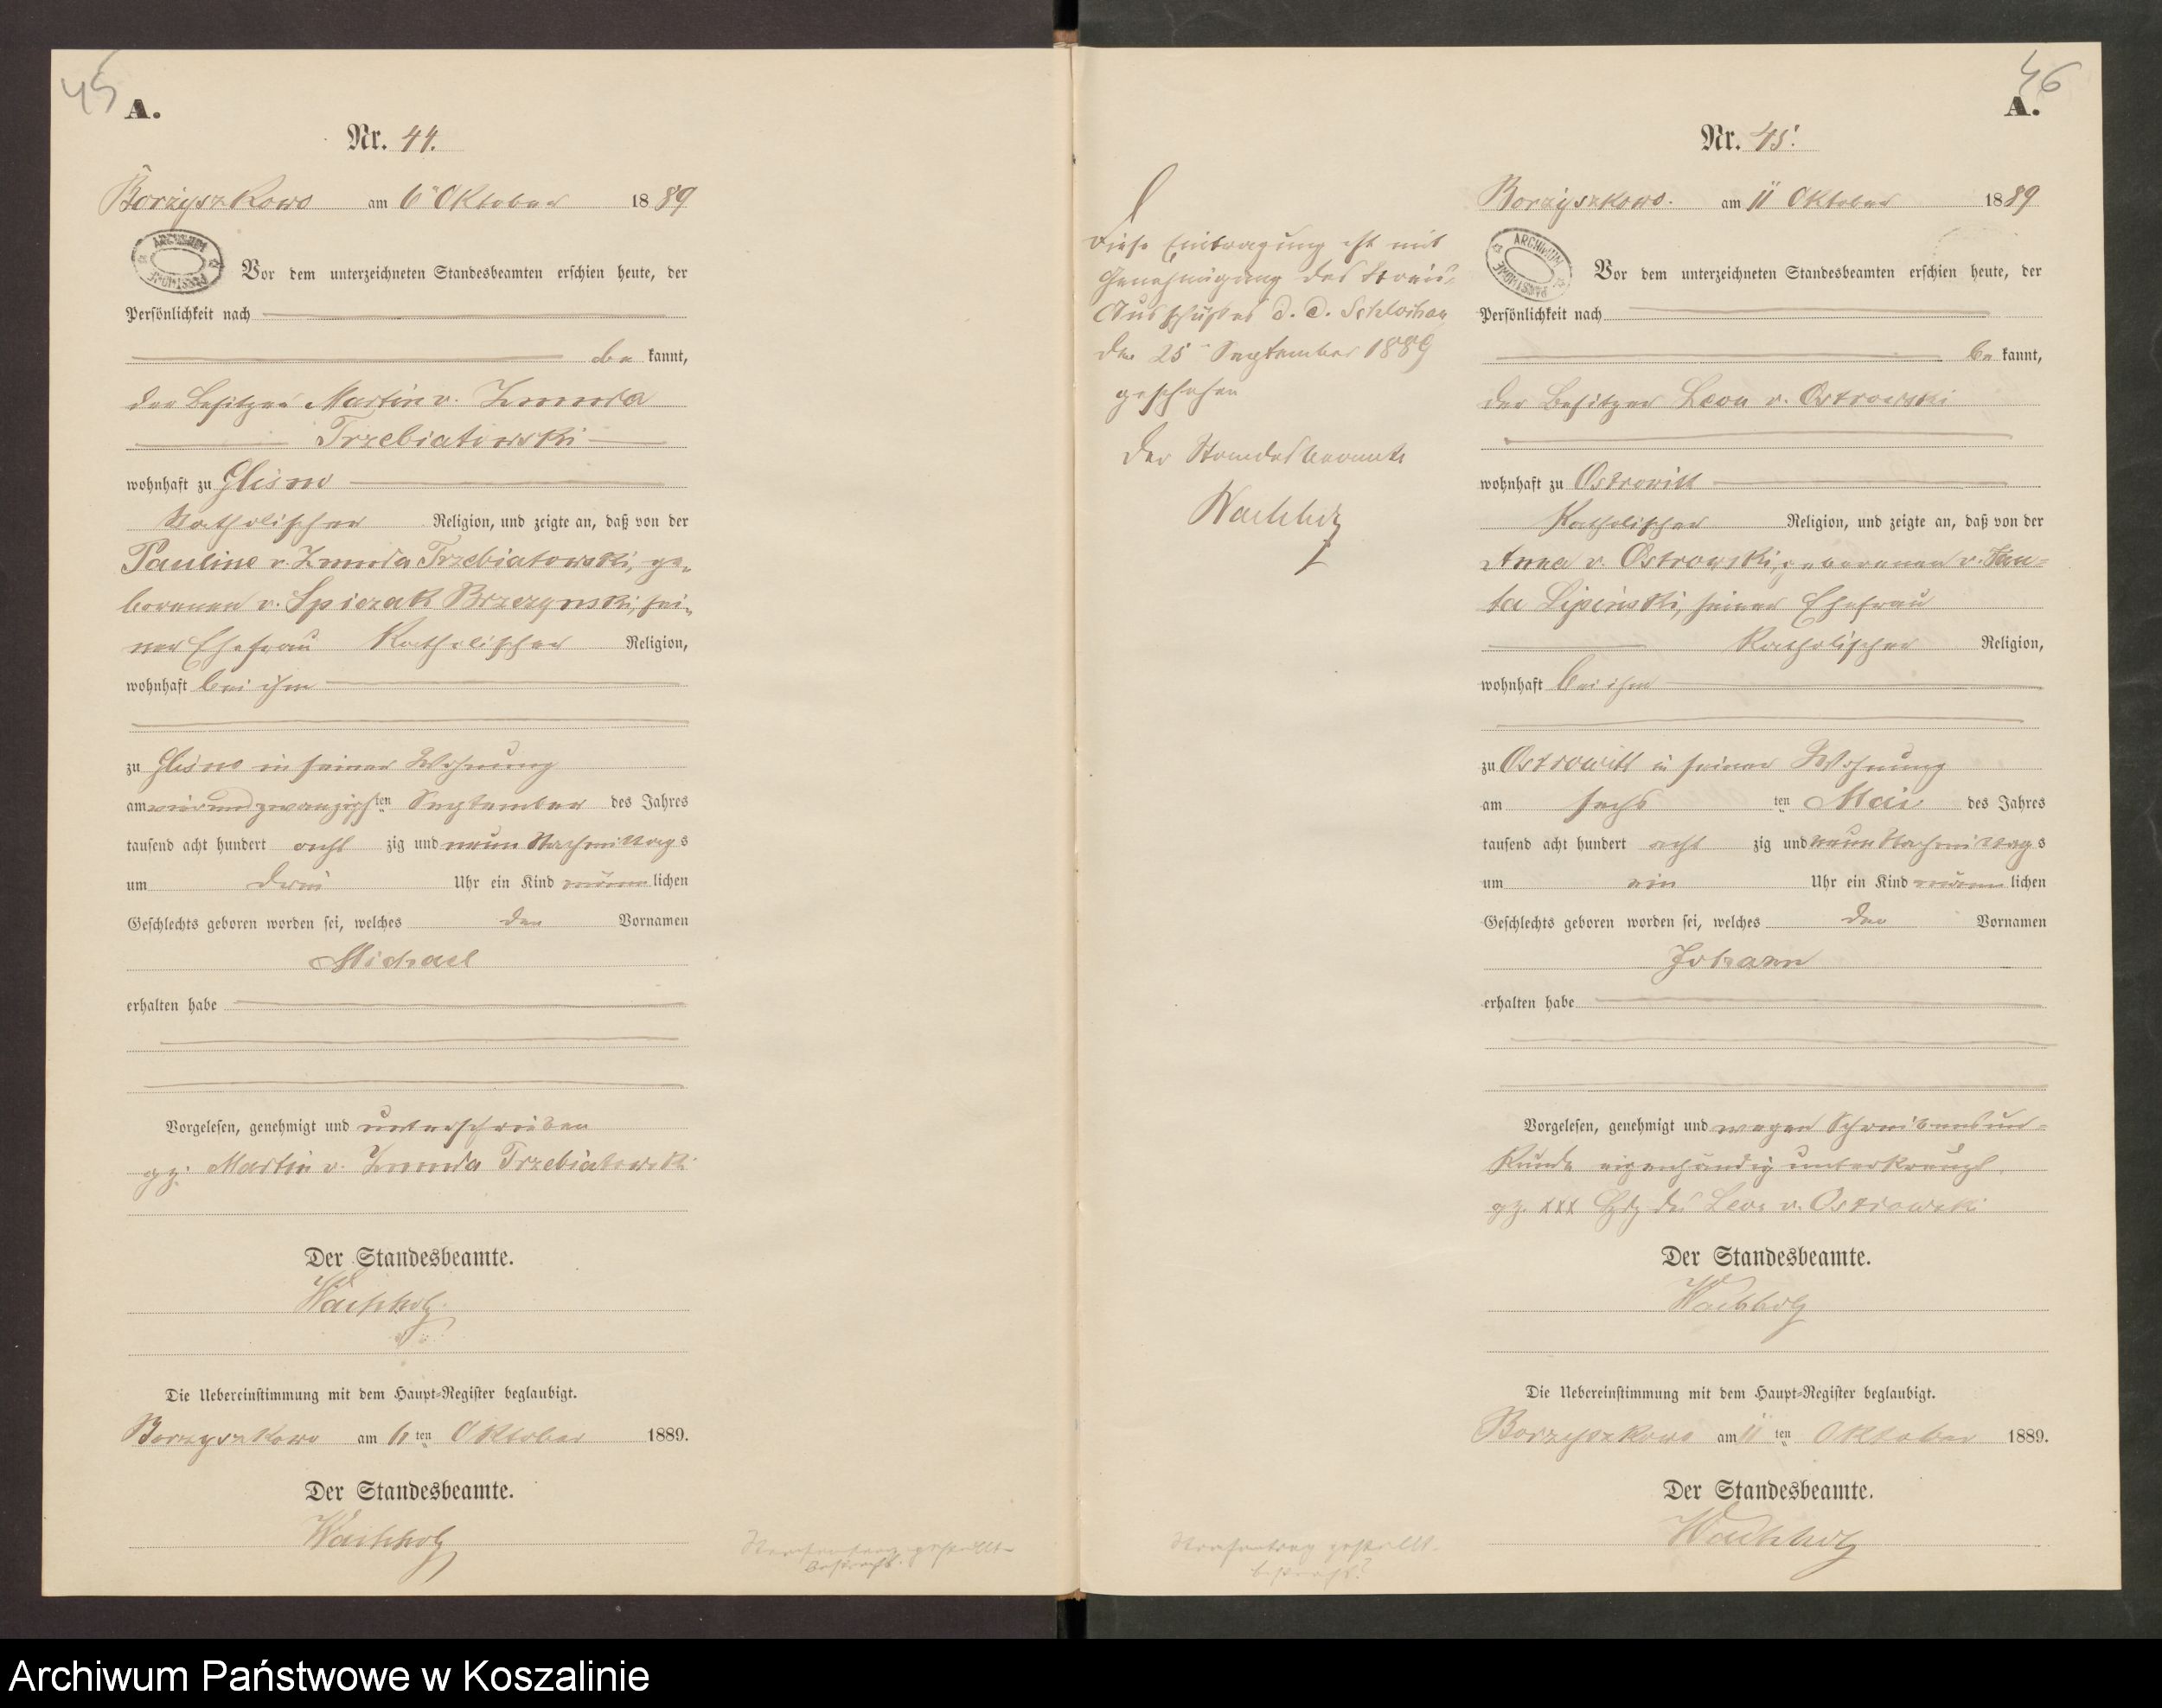 45
A.
Nr. 44.
Borzyszkowo am 6ten Oktober 1889
ARCHIWUM PAŃSTWOWE
Vor dem unterzeichneten Standesbeamten erschien heute, der
Persönlichkeit nach
be kannt,
der Besitzer Martin v. Zmuda
Trzebiatowski
wohnhaft zu Glisno
Katholischer Religion, und zeigte an, daß von der
Pauline v. Zmuda Trzebiatowski, ge-
borenen v. Spiczak Brzezynski, sei-
ner Ehefrau Katholischer Religion,
wohnhaft bei ihm
zu Glisno in seiner Wohnung
am vierundzwanzigsten September des Jahres
tausend acht hundert acht zig und neun Nachmittags
um drei Uhr ein Kind männ lichen
Geschlechts geboren worden sei, welches den Vornamen
Michael
erhalten habe
Vorgelesen, genehmigt und unterschrieben
gz. Martin v. Zmuda Trzebiatowski
Der Standesbeamte.
Wachholz
Die Uebereinstimmung mit dem Haupt-Register beglaubigt.
Borzyszkowo am 6 ten Oktober 1889.
Der Standesbeamte.
Wachholz
Strafantrag gestellt
bestraft.
46
A.
Nr. 45.
Diese Eintragung ist mit
Genehmigung des Kreis-
Ausschusses d. d. Schlochau
den 25 September 1889
geschehen
Der Standesbeamte
Wachholz
Strafantrag gestellt.
bestraft?
Borzyszkowo. am 11 Oktober 1889
ARCHIWUM PAŃSTWOWE
Vor dem unterzeichneten Standesbeamten erschien heute, der
Persönlichkeit nach
be kannt,
der Besitzer Leon v. Ostrowski
wohnhaft zu Ostrowitt
Katholischer Religion, und zeigte an, daß von der
Anna v. Ostrowski, geborenen v.
Lipinski, seiner Ehefrau
Katholischer Religion,
wohnhaft bei ihm
zu Ostrowitt in seiner Wohnung
am sechs ten Mai des Jahres
tausend acht hundert acht zig und neun Nachmittags
um ein Uhr ein Kind männ lichen
Geschlechts geboren worden sei, welches den Vornamen
Johann
erhalten habe
Vorgelesen, genehmigt und wegen Schreibensun-
kunde eigenhändig unterkreuzt.
gz. xxx Hdz des Leon v. Ostrowski
Der Standesbeamte.
Wachholz
Die Uebereinstimmung mit dem Haupt-Register beglaubigt.
Borzyszkowo am 11 ten Oktober 1889.
Der Standesbeamte.
Wachholz
Archiwum Państwowe w Koszalinie